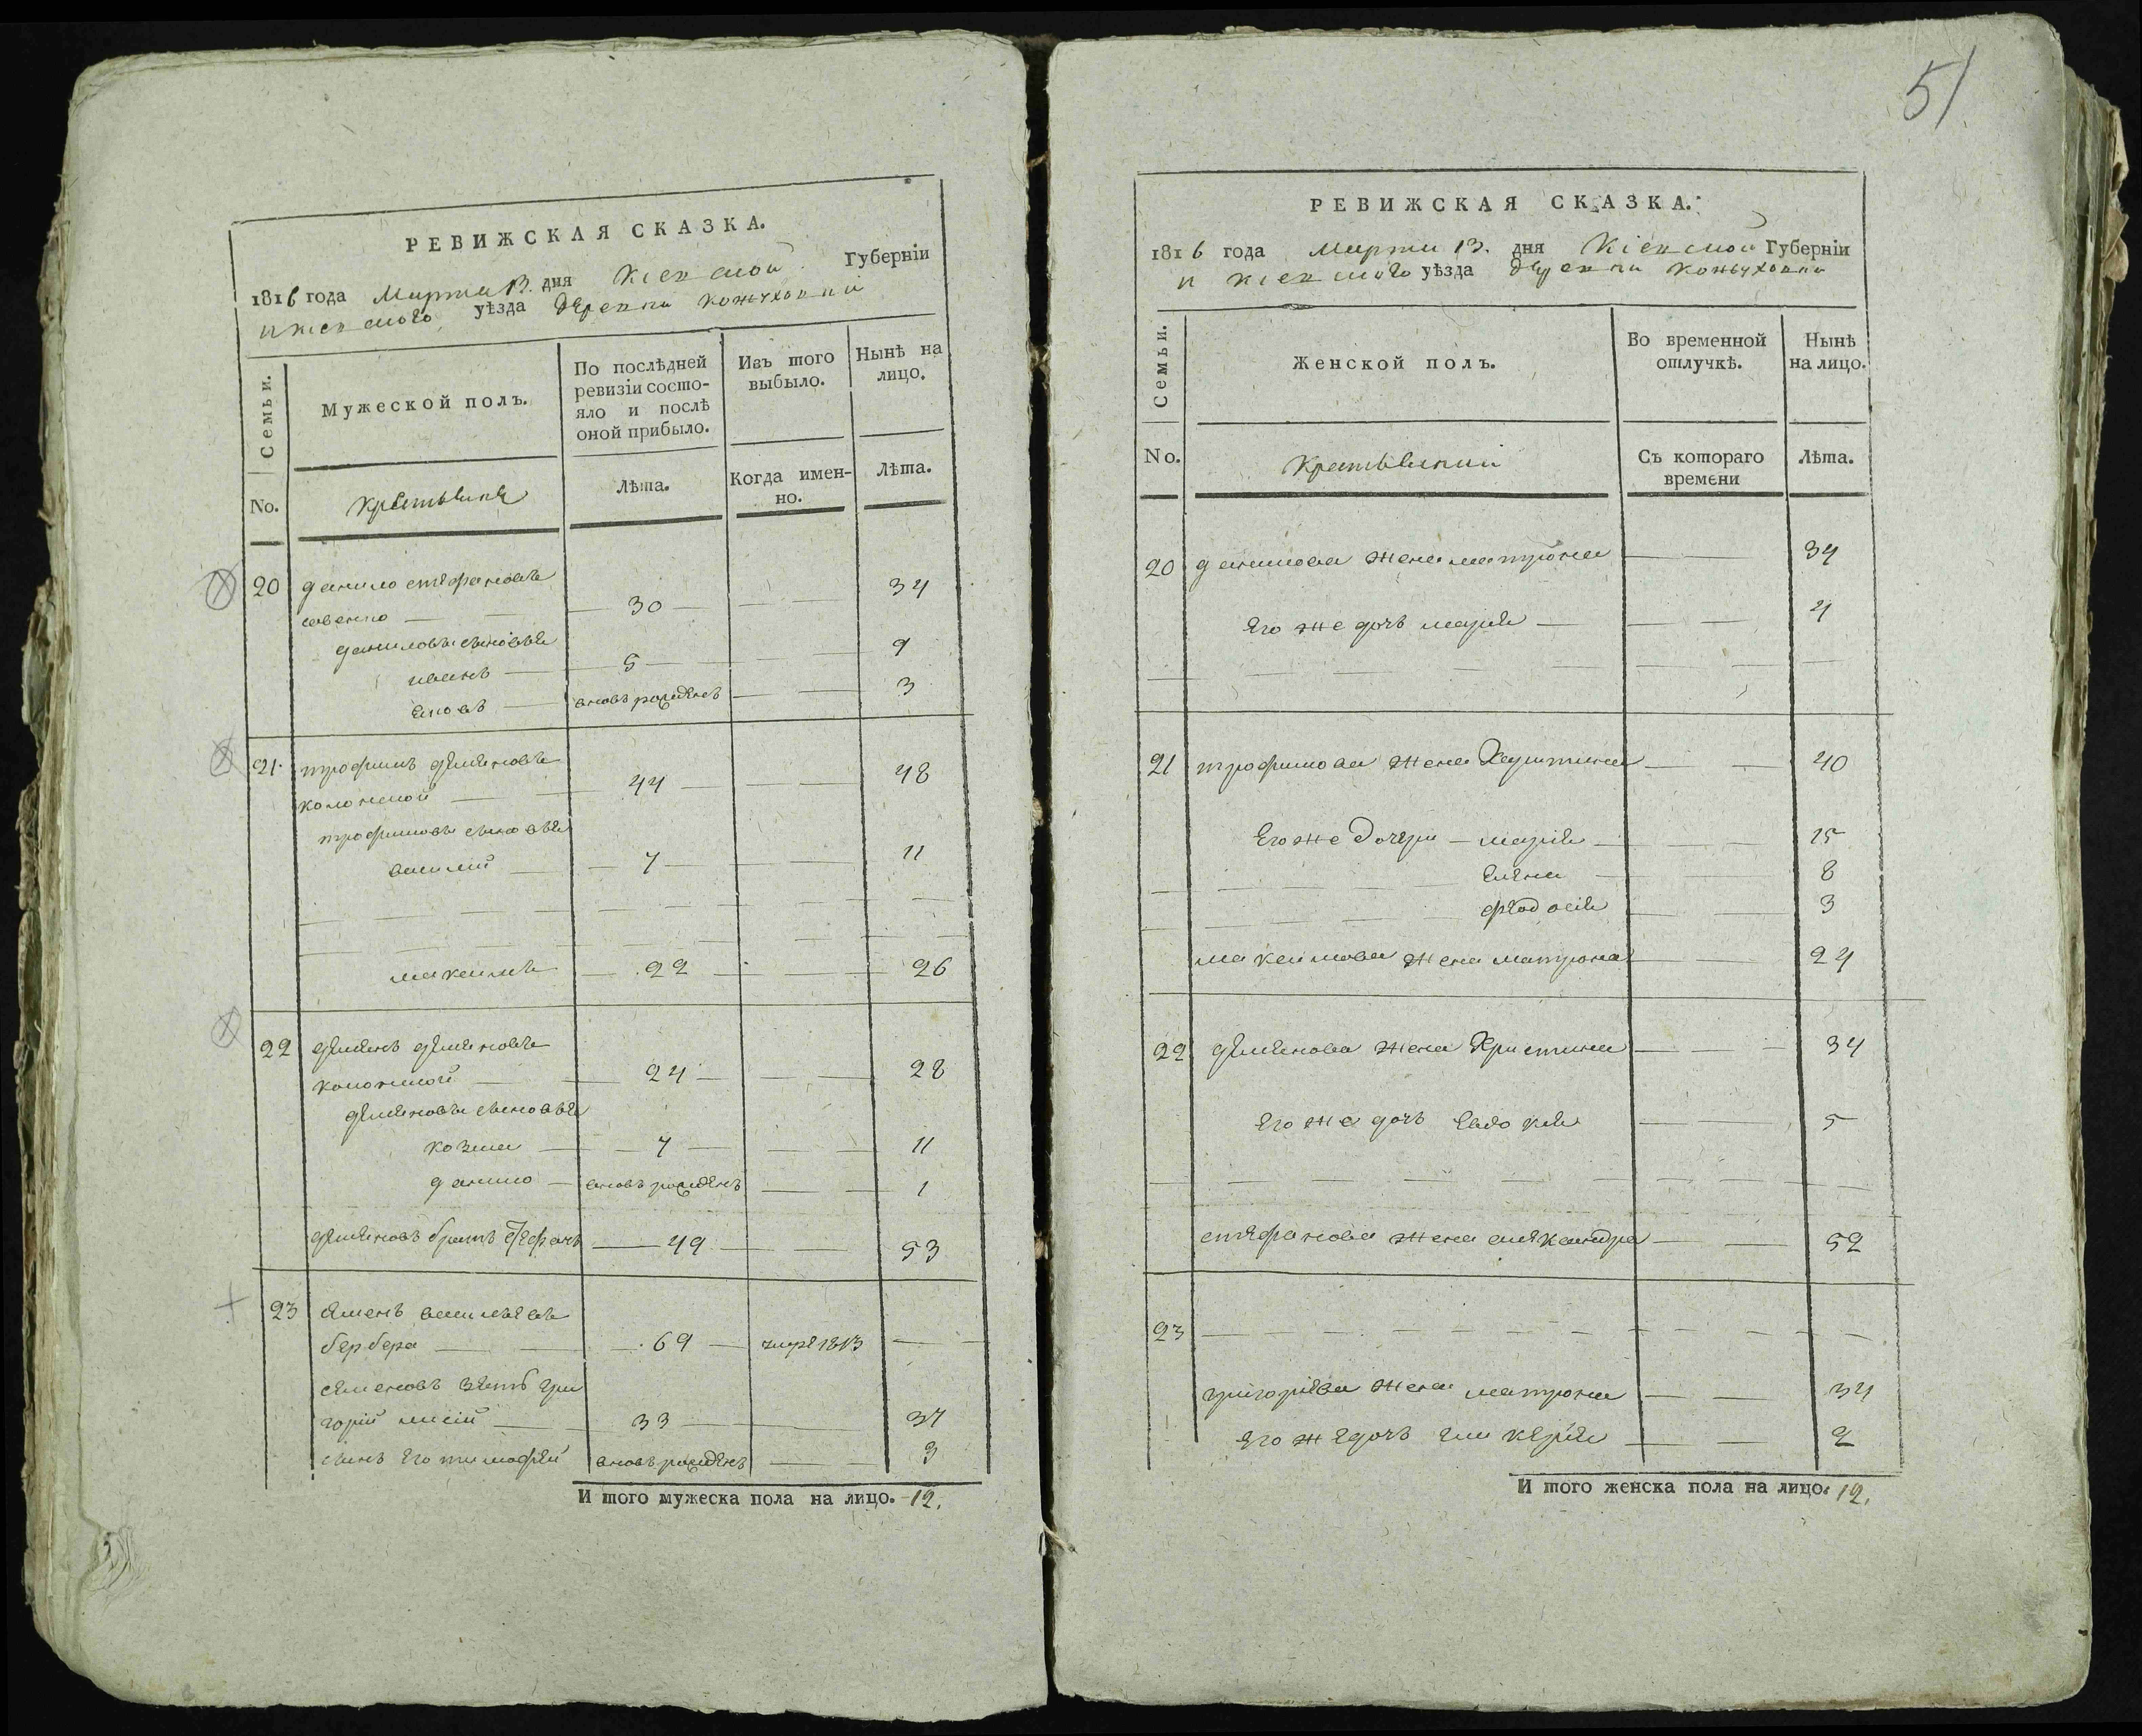 РЕВИЖСКАЯ СКАЗКА.
1816 года Марта 13. дня Кіевской Губерніи
и кіевского уѣзда деревни кожуховки
Семьи.
Мужеской полъ.
По послѣдней ревизіи состояло и послѣ оной прибыло.
Изъ того выбыло.
Нынѣ на лицо.
No.
крестьяне
Лѣта.
Когда именно.
Лѣта.
20 данило стефановъ
— 30 — — — 34
даниловы сыновья
иванъ — 5 — — — 9
яковъ — вновь рожденъ — — 3
21. трофимъ демяновъ
коломной — — 44 — — — 48
трофимовы сыновья
василий — — 7 — — — 11
максимъ — 22 — — — 26
22 демянъ демяновъ
коломной — — 24 — — — 28
демяновы сыновья
козма — — 7 — — — 11
данило — вновь рожденъ — — 1
демяновъ братъ стефанъ — 49 — — 53
23 семенъ васильевъ
бербера — — 69 — умре 1813 — —
семеновъ зять гри
горій лисій — 33 — — 37
сынъ его тимофей вновь рожденъ — — 3
И того мужеска пола на лицо. 12.
51
РЕВИЖСКАЯ СКАЗКА.
1816 года Марта 13. дня Кіевской Губерніи
и кіевского уѣзда деревни кожуховки
Семьи.
Женской полъ.
Во временной отлучкѣ.
Нынѣ на лицо.
No.
Съ котораго времени
Лѣта.
20 данилова жена матрона — — 34
Его же дочь марія — — — 4
21 трофимова жена — — 40
Его же дочери — марія — — — 15
елена — — 8
феодосія — — 3
максимова жена матрона — — 24
22 демянова жена Христина — — 34
Его же дочь Евдокія — — 5
стефанова жена александра — — 52
23 — — — — — — — — —
григоріева жена матрона — — 34
Его же дочь гликерія — — 2
И того женска пола на лицо. 12.